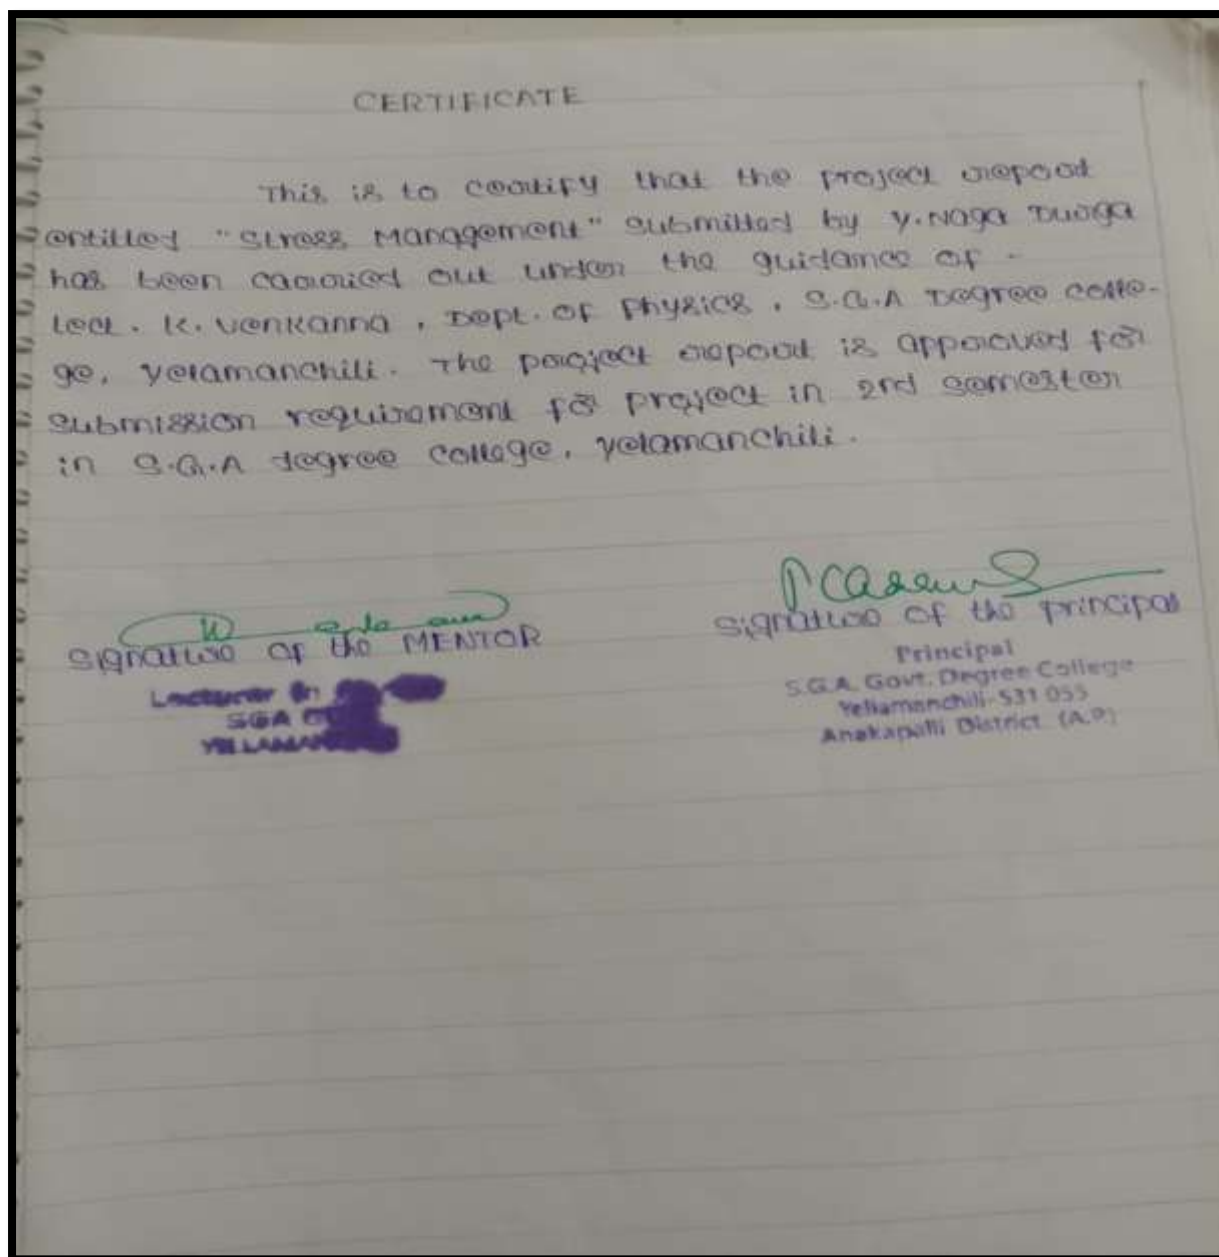 CERTIFICATE
This is to certify that the project report
entitled "Stress Management" submitted by Y. Naga Durga
has been carried out under the guidance of -
Lect. K. Venkanna, Dept. of Physics, S.G.A Degree colle-
ge, Yelamanchili. The project report is approved for
submission requirement for project in 2nd semester
in S.G.A degree college, yelamanchili.
signature of the MENTOR
signature of the principal
Lecturer in
SGA
Principal
S.G.A. Govt. Degree College
Yellamanchili-531 055
Anakapalli District (A.P)